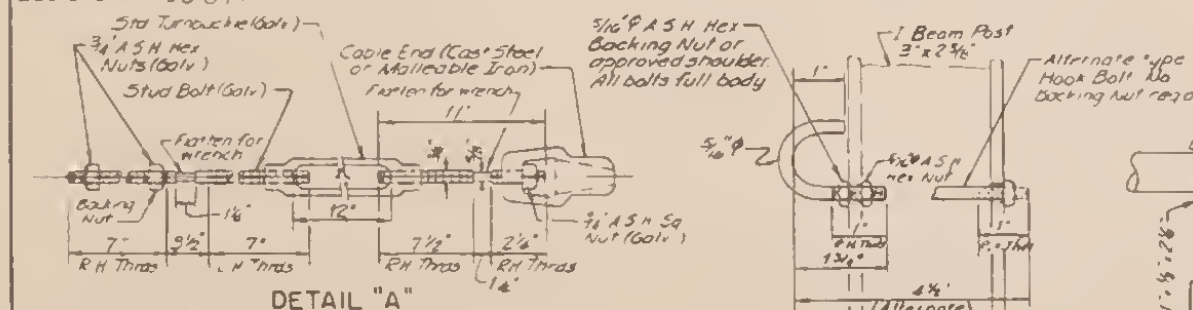 Std Turnbuckle (Galv.)
3/4" A S H Hex
Nuts (Galv.)
Stud Bolt (Galv.)
Cable End (Cast Steel
or Malleable Iron)
Flatten for wrench
11"
Flatten for
wrench
Backing
Nut
1 1/8"
12"
3/4" A S H Sq
Nut (Galv.)
7"
7"
7 1/2"
2 1/4"
R H Thrds
L H Thrds
R H Thrds
R H Thrds
DETAIL "A"
5/16" φ A S H Hex
Backing Nut or
approved shoulder.
All bolts full body
I Beam Post
3" x 2 3/8"
Alternate type
Hook Bolt No
Backing Nut
1"
5/16" φ
5/16" φ A S H
Hex Nut
1"
1"
1 3/4"
4 1/2"
(Alternate)